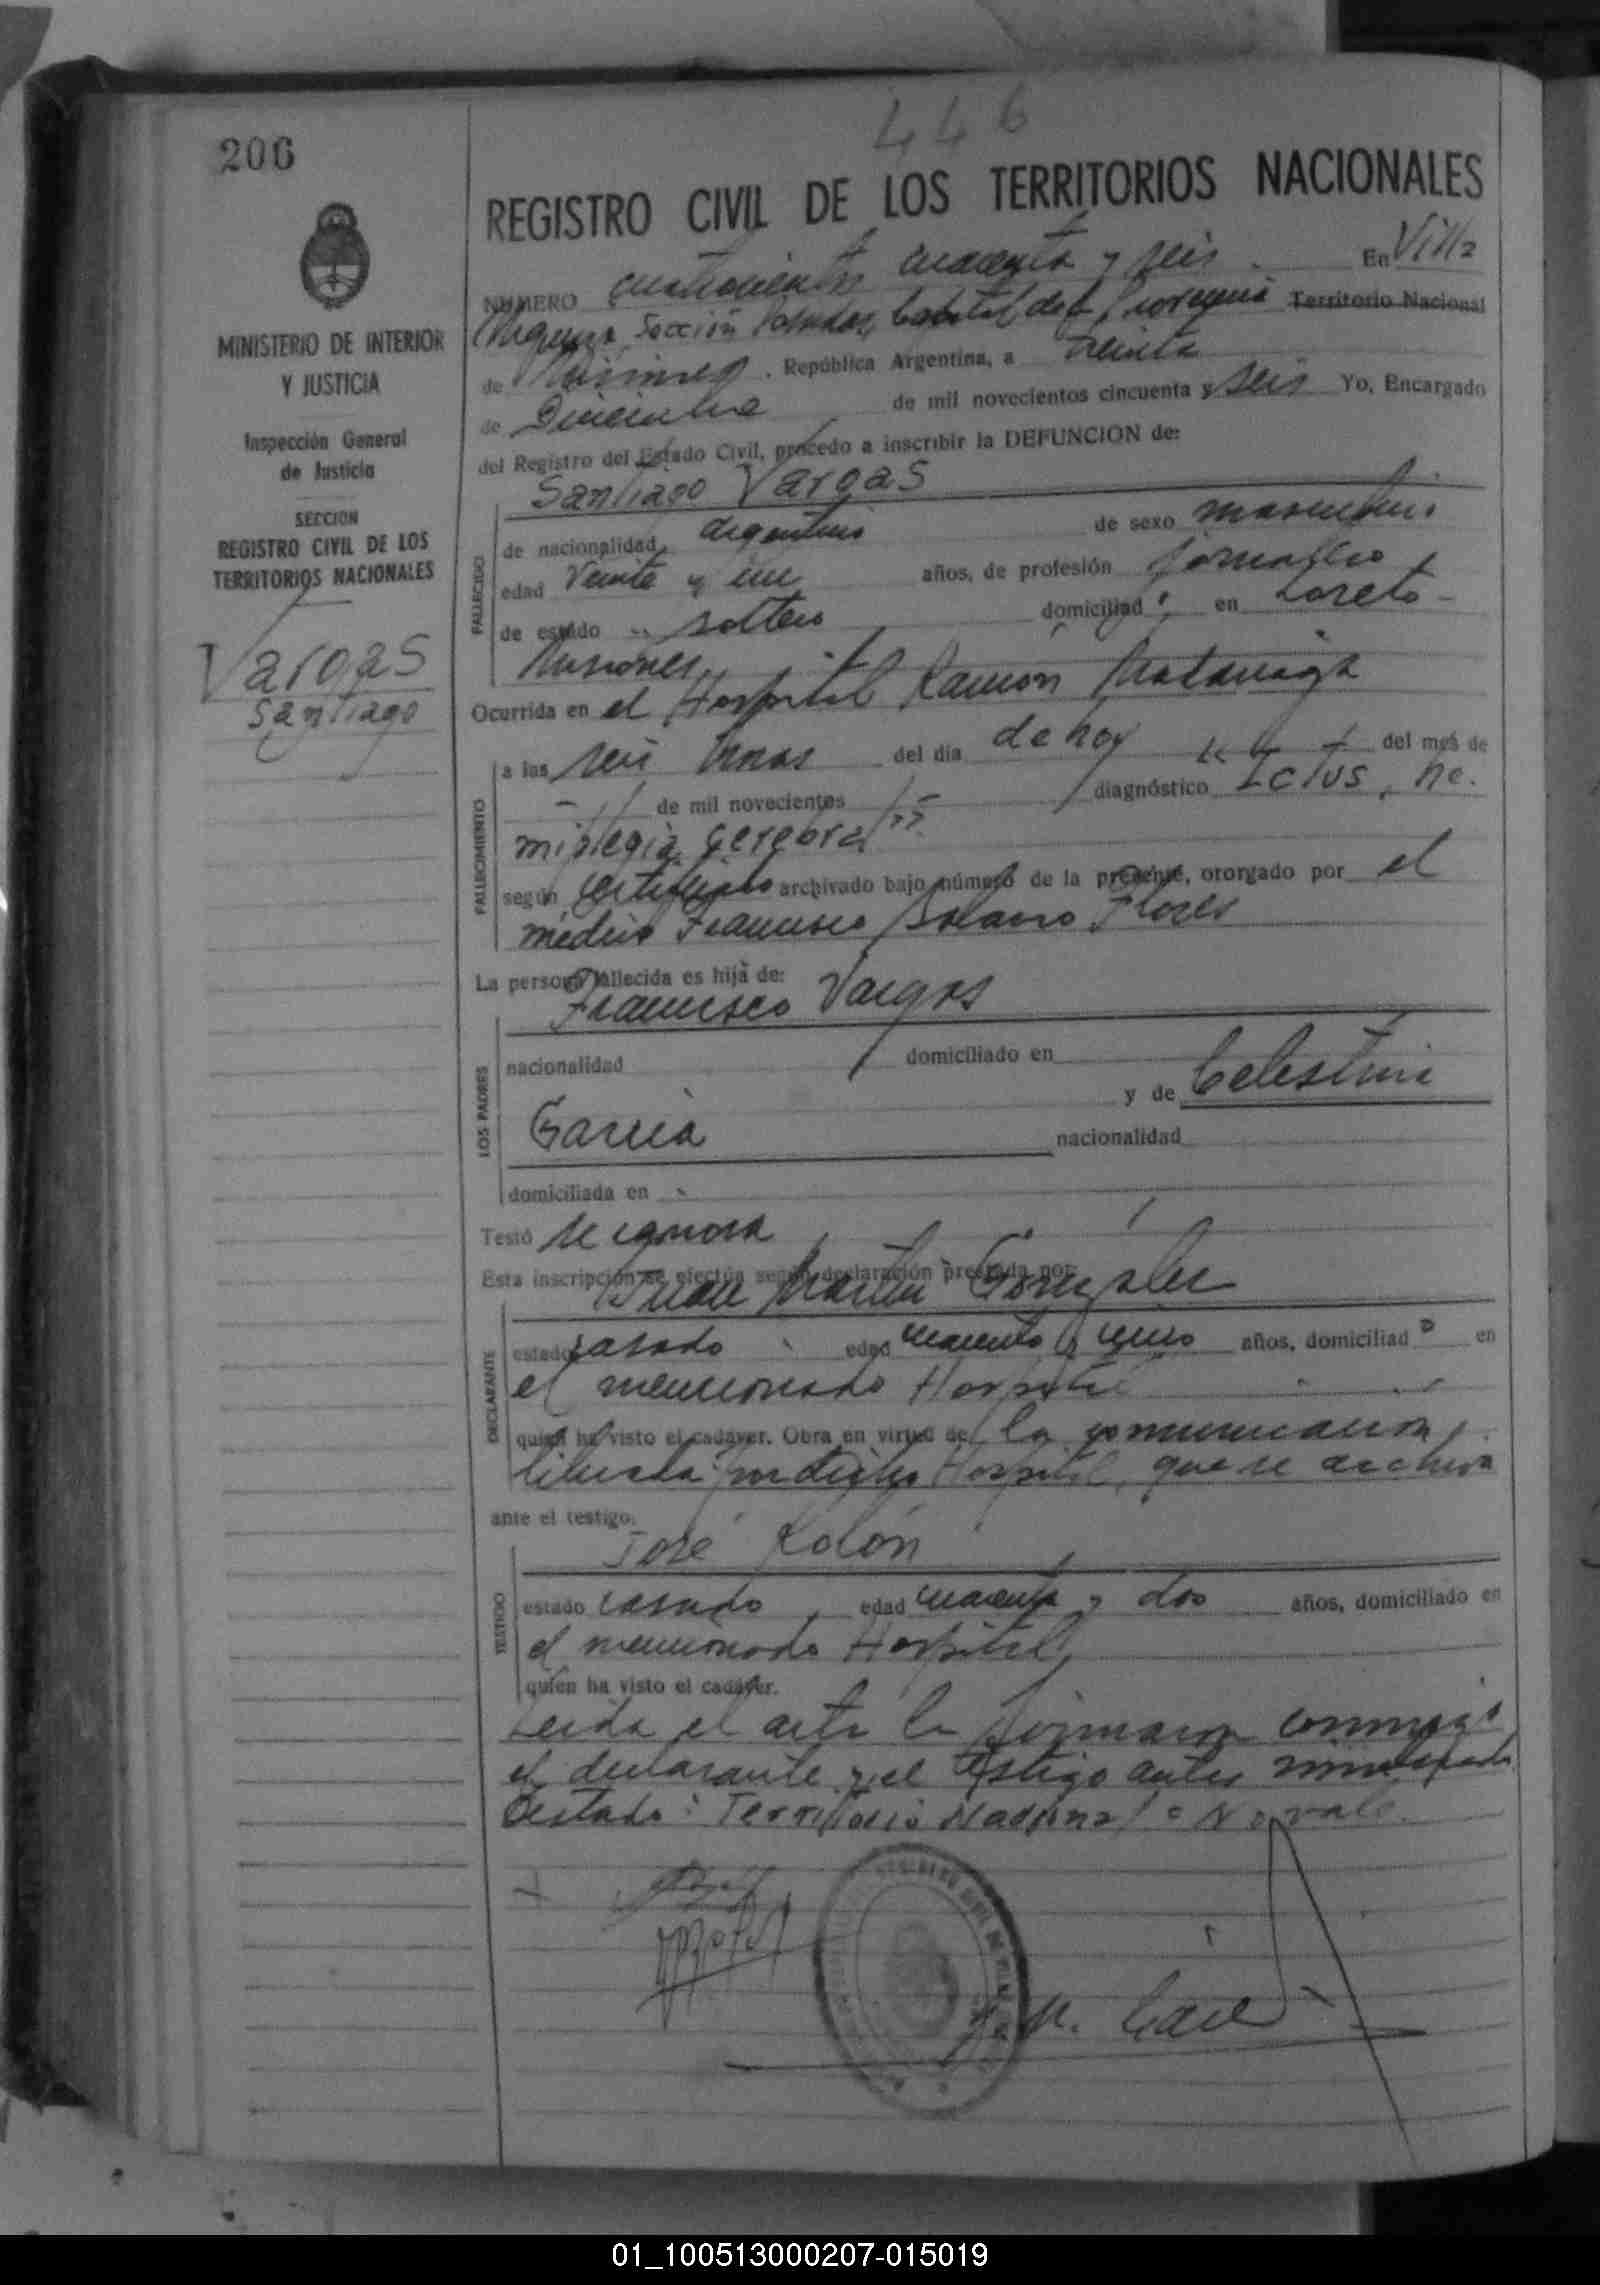 446
206
REGISTRO CIVIL DE LOS TERRITORIOS NACIONALES
MINISTERIO DE INTERIOR
Y JUSTICIA
Inspección General
de Justicia
SECCION
REGISTRO CIVIL DE LOS
TERRITORIOS NACIONALES
Vargas
Santiago
NUMERO cuatrocientos cuarenta y seis En Villa
Sección Posadas, Capital de la Provincia Territorio Nacional
de Misiones. República Argentina, a treinta
de Diciembre de mil novecientos cincuenta y seis Yo, Encargado
del Registro del Estado Civil, procedo a inscribir la DEFUNCION de:
Santiago Vargas
FALLECIDO
de nacionalidad argentino de sexo masculino
edad veinte y un años, de profesión jornalero
de estado soltero domiciliado en Loreto -
Misiones
Ocurrida en el Hospital Ramón Madariaga
FALLECIMIENTO
a las seis horas del día de hoy del mes de
de mil novecientos diagnóstico "Ictus, he.
miplegia cerebral"
según certificado archivado bajo número de la presente, otorgado por el
médico Francisco Solano Flores
La persona fallecida es hija de:
Francisco Vargas
LOS PADRES
nacionalidad domiciliado en
y de Celestina
García nacionalidad
domiciliada en
Testó se ignora
Esta inscripción se efectúa según declaración prestada por:
Juan Martín González
DECLARANTE
estado casado edad cuarenta y cinco años, domiciliado en
el mencionado Hospital
quien ha visto el cadáver. Obra en virtud de la comunicación
librada por dicho Hospital, que se archiva
ante el testigo:
José Rolón
TESTIGO
estado casado, edad cuarenta y dos años, domiciliado en
el mencionado Hospital
quien ha visto el cadáver.
Leída el acta la firmaron conmigo
el declarante y el testigo antes mencionado
Testado: Territorio Nacional = No vale.
01_100513000207-015019